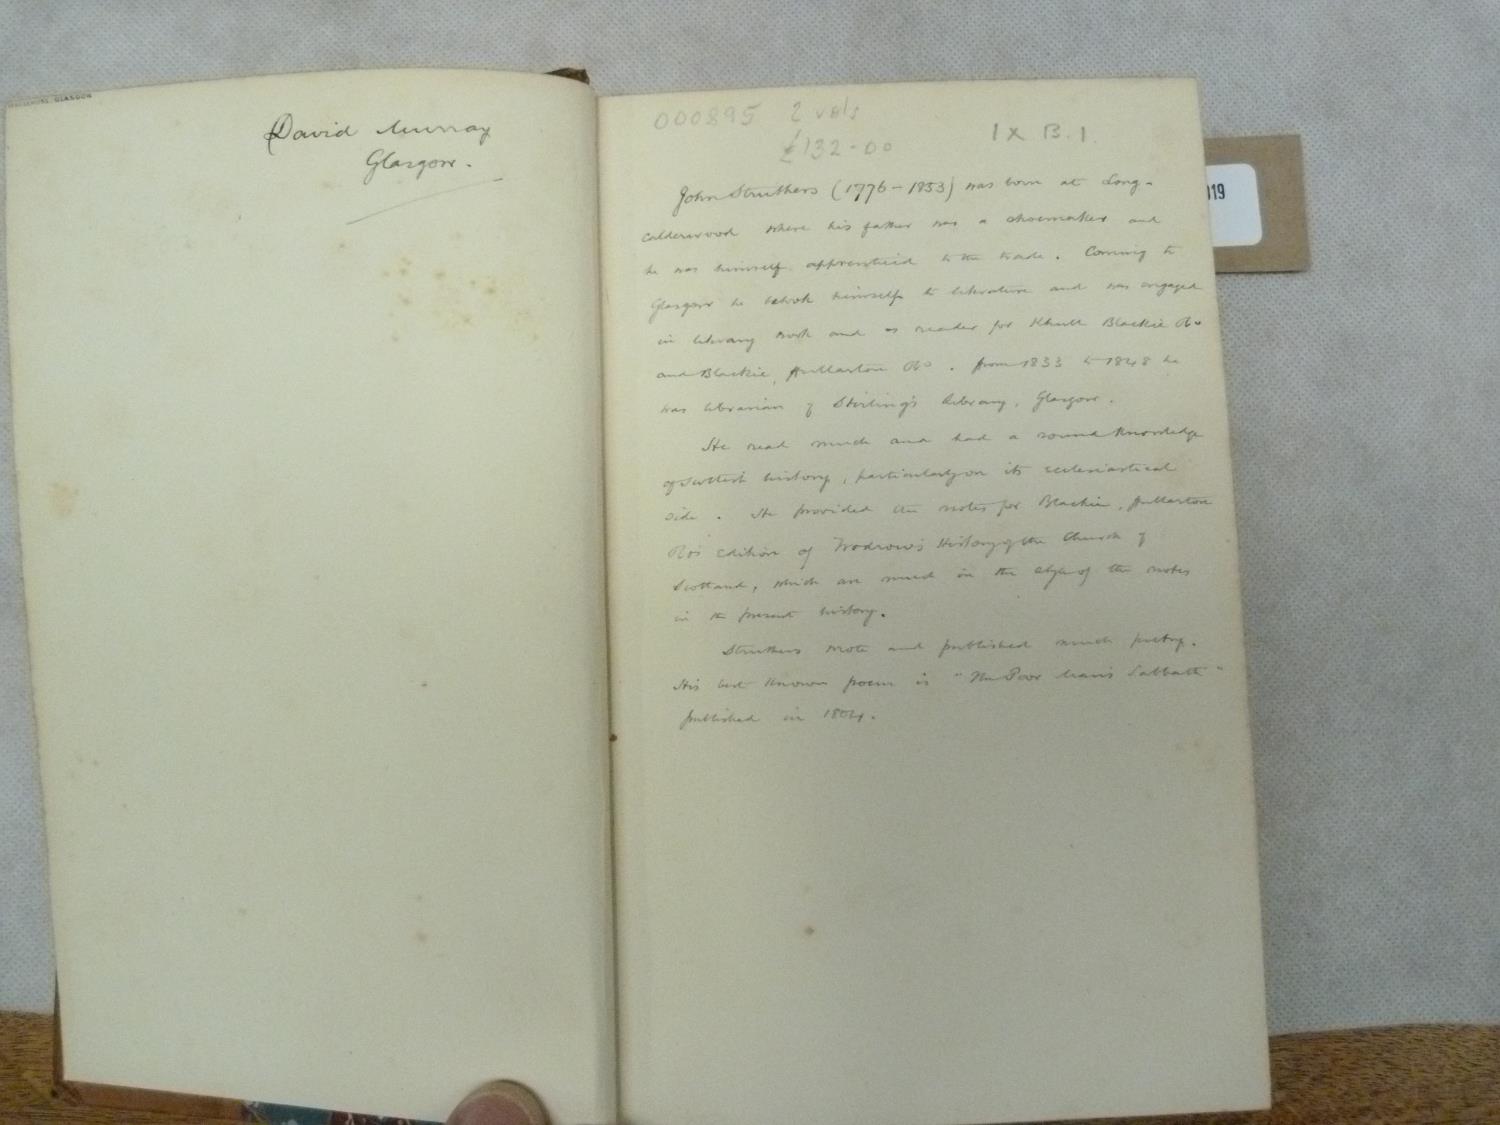 GLASGOW
David Murray
Glasgow.
000895 2 vols
£132-00
1 x B.1.
019
John Struthers (1776-1853) was born at Long-
calderwood where his father was a shoemaker and
he was himself apprenticed to the trade. Coming to
Glasgow he betook himself to literature and was engaged
in literary work and as reader for Khull Blackie & Co
and Blackie, Fullarton & Co. From 1833 to 1848 he
was librarian of Stirling's Library, Glasgow.
He read much and had a sound knowledge
of Scottish history, particularly on its ecclesiastical
side. He provided the notes for Blackie, Fullarton
& Co's edition of Wodrow's History of the Church of
Scotland, which are much in the style of the notes
in the present history.
Struthers wrote and published much poetry.
His best known poem is "The Poor Man's Sabbath"
published in 1804.